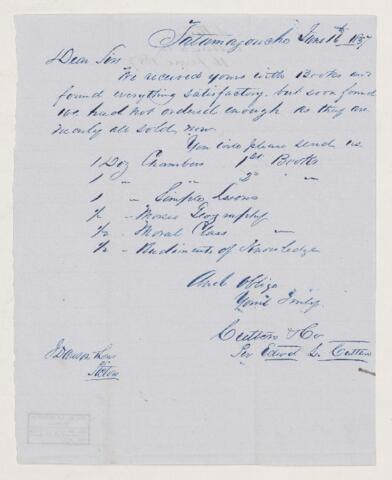 Tatamagouche June 16th 1857
Dear Sirs
We received yours with Books and
found everything satisfactory, but soon found
we had not ordered enough as they are
nearly all sold, now.
You will please send us
1 Doz Chambers 1st Books
1 " " 2d "
1 " Simple Lessons
½ " Geography
½ " Moral Class "
½ " Rudiments of Knowledge
And oblige
Yours Truly
Cutten & Co
Per Edward L. Cutten
J Dawson & Sons
Pictou